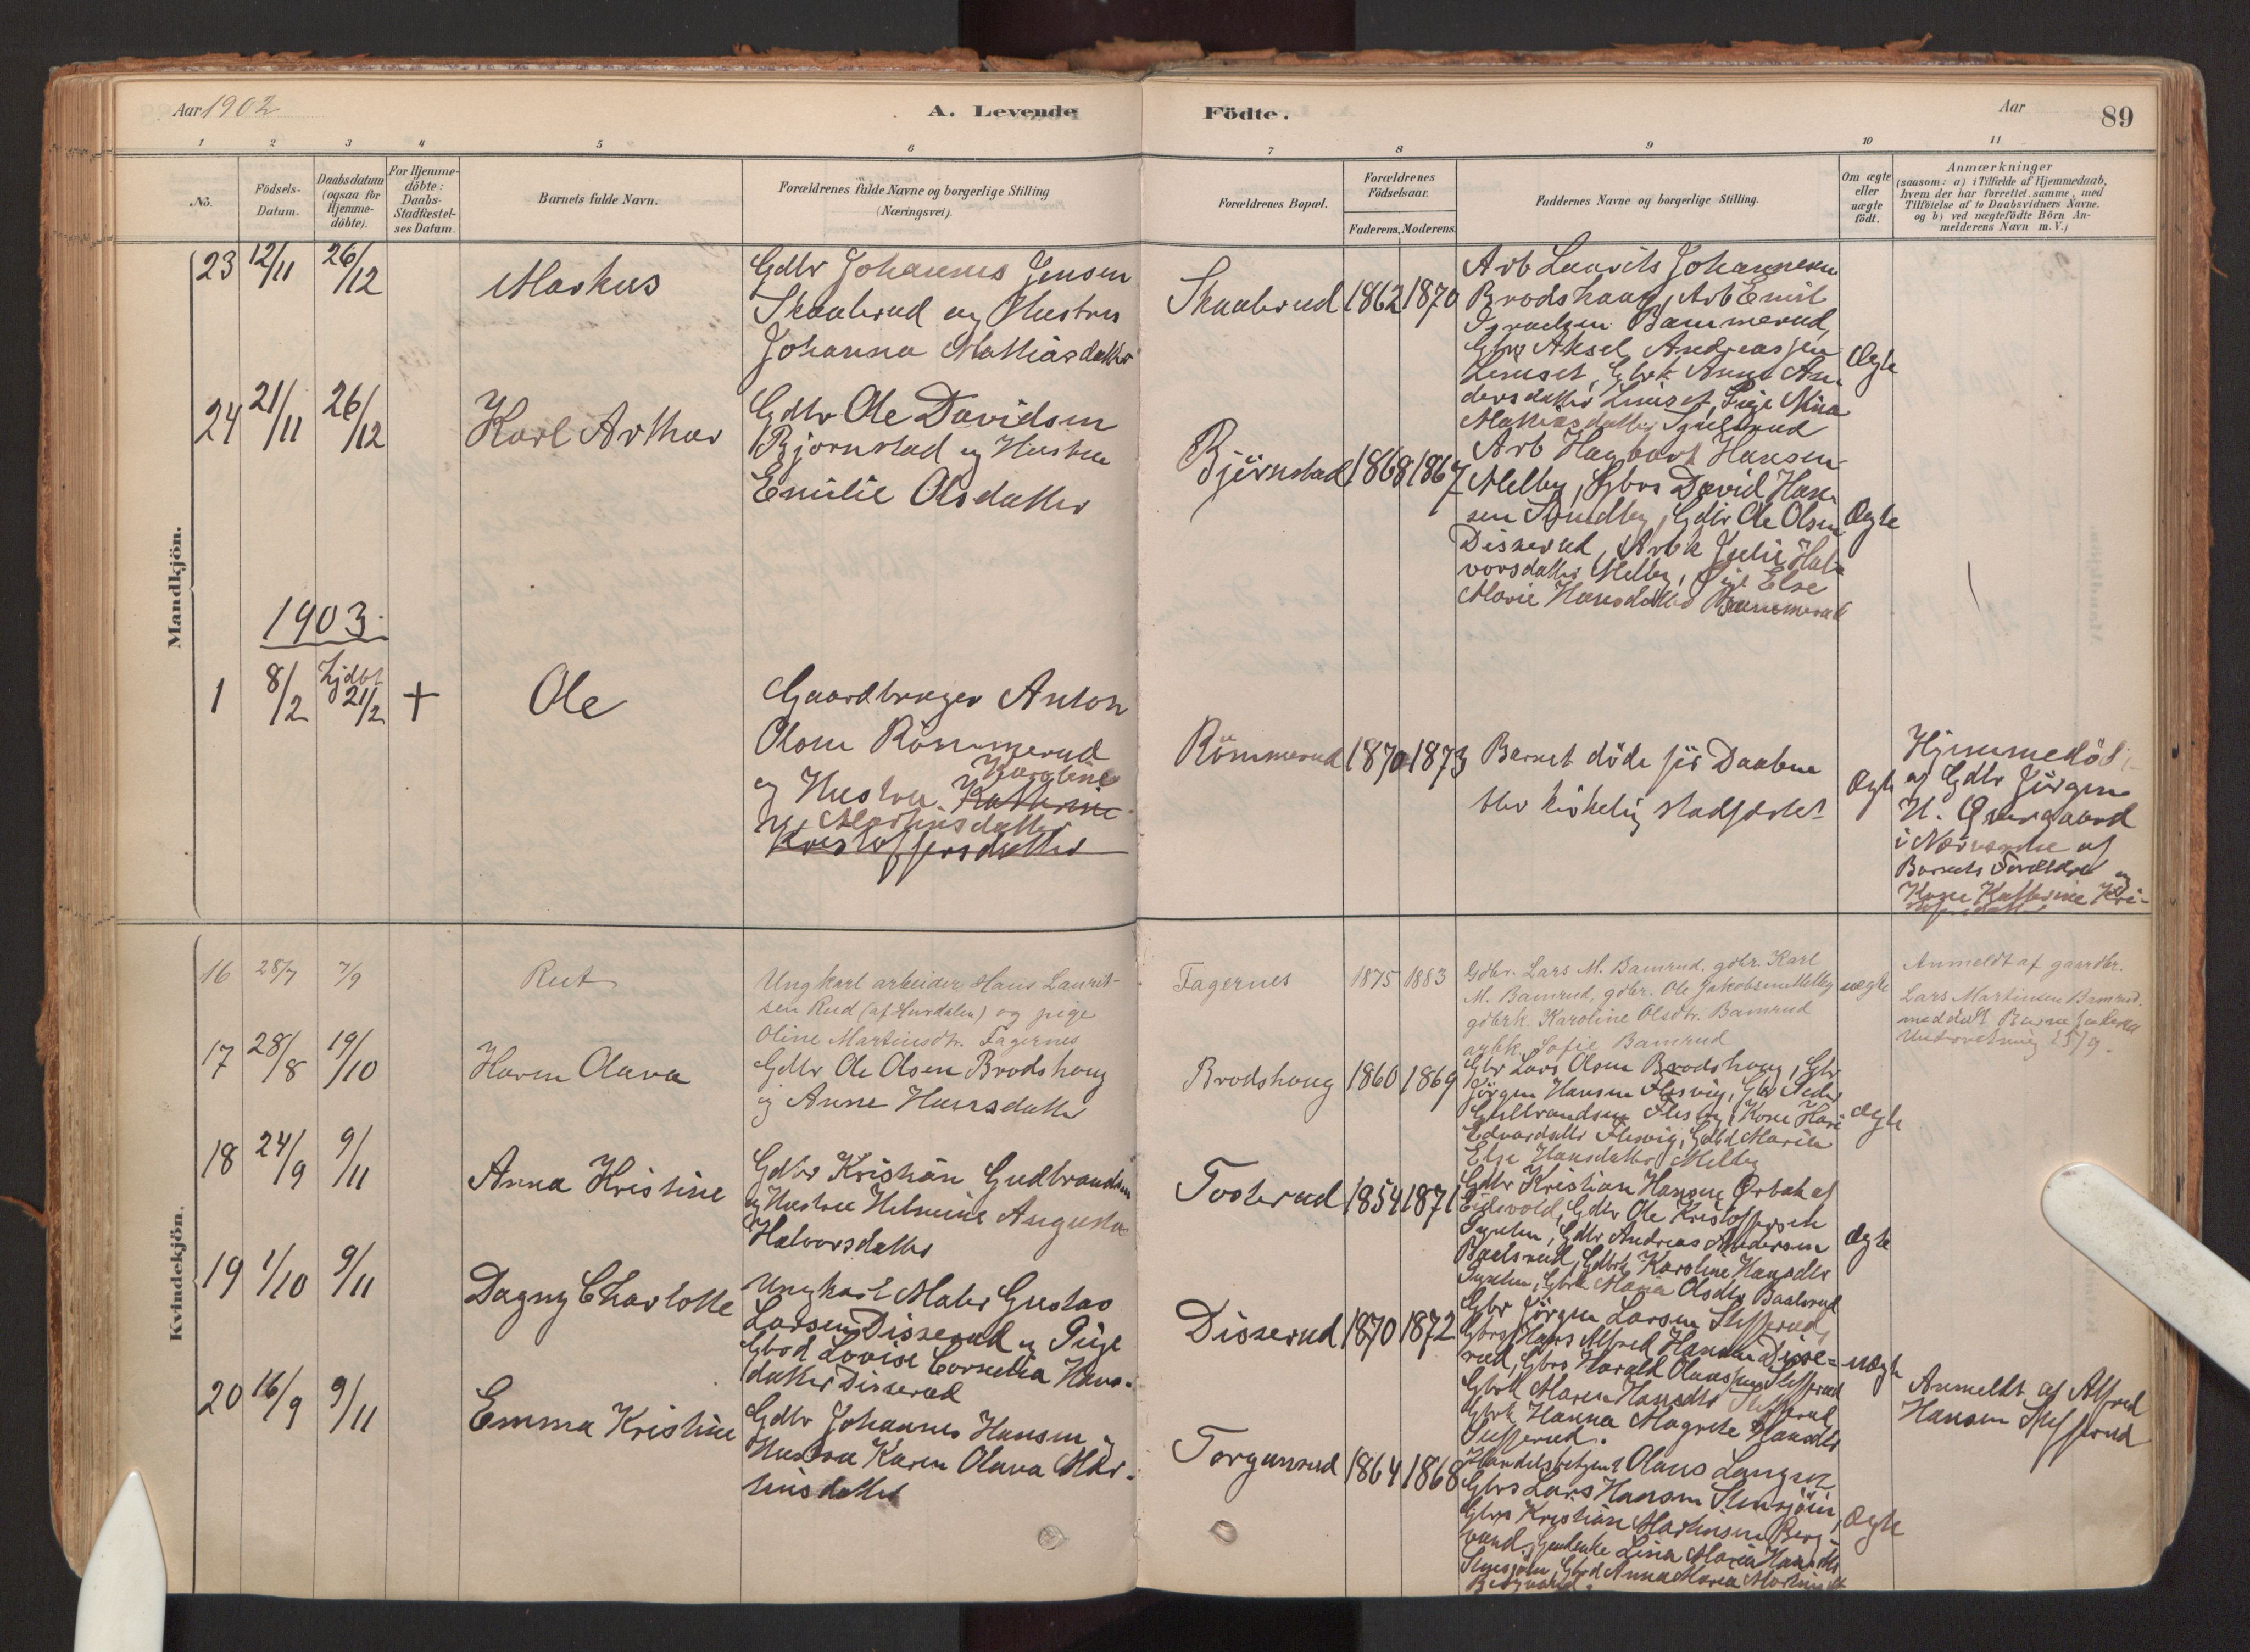 Aar 1902
A. Levende
Födte.
Aar
89
1 2 3 4 5 6 7 8 9 10 11
No.
Födsels-
Datum.
Daabsdatum
(ogsaa for
Hjemme-
döbte).
For Hjemme-
döbte:
Daabs-
Stadfæstel-
ses Datum.
Barnets fulde Navn.
Forældrenes fulde Navne og borgerlige Stilling
(Næringsvei).
Forældrenes Bopæl.
Forældrenes
Födselsaar.
Faderens. Moderens.
Faddernes Navne og borgerlige Stilling.
Om ægte
eller
uægte
födt.
Anmærkninger
(saasom: a) i Tilfælde af Hjemmedaab,
hvem der har forrettet samme, med
Tilföielse af to Daabsvidners Navne.
og b) ved uægtefödte Börn An-
melderens Navn m. V.)
Mandkjön.
23 12/11 26/12 Markus
Gdbr Johannes Jensen
Skaabrud og Hustru
Johanna Mathiasdatter
Skaabrud 1862 1870
Arb Laurits Johannesen
Brodshaug, Arb Emil
Bammerud,
Gbrs Aksel Andreassen
Linset, Gbrk Anne An-
dersdatter Linset, Pige Mina
Mathiasdatter
Ægte
24 21/11 26/12 Karl Arthur
Gdbr Ole Davidsen
Bjørnstad og Hustru
Emilie Olsdatter
Bjørnstad 1868 1867
Arb Hagbart Hansen
Melby, Gbrs David Han-
sen Sundby, Gdbr Ole Olsen
Disserud, Arbk Julie Hal-
vorsdatter Melby, Pige Else
Marie Hansdatter Bammerud
Ægte
1903
1 8/2 Hjdbt 21/2 + Ole
Gaardbruger Anton
Olsen Römmerud
og Hustru Karoline
Katherine
Martinsdatter
Kristoffersdatter
Römmerud 1870 1873
Barnet döde för Daaben
blev kirkelig stadfæstet
Ægte
Hjemmedöbt
af Gdbr Jörgen
H. Övergaard
i Nærværelse af
Barnets Forældre og
Kone Katherine Kri-
stoffersdatter
Kvindekjön.
16 28/7 7/9 Rut
Ungkarl arbeider Hans Laurit-
sen Rud (af Hurdalen) og pige
Oline Martinsdtr. Fagernes
Fagernes 1875 1883
Gdbr. Lars M. Bamrud. gdbr. Karl
M. Bamrud, gdbr. Ole Jakobsen Melby
gdbrk. Karoline Olsdtr. Bamrud
arbk. Sofie Bamrud
uægte
Anmeldt af gaardbr.
Lars Martinsen Bamrud.
meddelt
Underretning 25/9.
17 28/8 19/10 Karen Olava
Gdbr Ole Olsen Brodshoug
og Anne Hansdatter
Brodshoug 1860 1869
Gbr Lars Olsen Brodshoug, Gbr
Jörgen Hansen Flesvig, Gbr Peder
Gulbrandsen Flesvig, Kone
Edvardsdtr Flesvig, Gdbd Maren
Else Hansdatter Melby
ægte
18 24/9 9/11 Anna Kristine
Gdbr Kristian Gudbrandsen
og Hustru Helmine Augusta
Halvorsdatter
Tosterud 1854 1871
Gdbr Kristian Hansen Örbak af
Eidsvold, Gdbr Ole Kristoffersen
Gdbr Andreas Andersen
Baalsrud, Gdbrk Karoline Hansdtr
Gbrk Maria Olsdtr Baalsrud
Ægte
19 1/10 9/11 Dagny Charlotte
Ungkarl Maler Gustav
Larsen Disserud og Pige
Gbsd Lovise Cornelia Hans-
datter Disserud
Disserud 1870 1872
Gbr Jörgen Larsen Slefferud,
Gbrs Hans Alfred Hansen Disse-
rud, Gbrs Harald Slefferud
Gbrk Maren Hansdtr Slefferud
Gbrk Hanna Magrete Hansdtr
Slefferud.
uægte
Anmeldt af Alfred
Hansen Slefferud
20 16/9 9/11 Emma Kristine
Gdbr Johannes Hansen og
Hustru Karen Olava Mar-
tinsdatter
Torgunrud 1864 1868
Handelsbetjent Olaus
Gbrs Lars Hansen Stensjöen,
Gbrs Kristian Martinsen Berg-
vand, Lina Maria Hansdtr
Stensjöen, Gbrd Anna Maria Martinsdtr
Bergvand.
Ægte